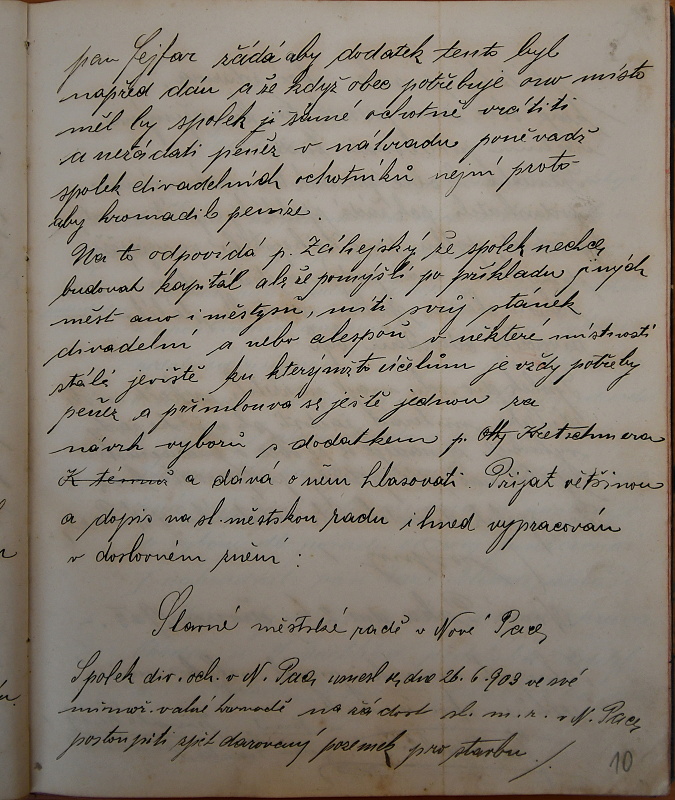 pan Fejfar žádá aby dodatek tento byl
napřed dán a že když obec potřebuje ono místo
měl by spolek jí samé ochotně vrátiti
a nežádati peněz v náhradu poněvadž
spolek divadelních ochotníků nejní proto
aby hromadil peníze.
Na to odpovídá p. že spolek nechce
budovati kapitál ale že pomýšlí po příkladu jiných
měst ano i městysů, míti svůj stánek
divadelní a nebo alespoň v některé místnosti
stálé jeviště ku kterýmžto účelům je vždy potřeby
peněz a přimlouvá se ještě jednou za
návrh výborů s dodatkem p. Otty Kretschmera
K témuž a dává o něm hlasovati. Přijat většinou
a dopis na sl. městskou radu ihned vypracován
v doslovném znění:
Slavné městské radě v Nové Pace,
Spolek div. och. v N. Pace usnesl se dne 26. 6. 903 ve své
mimoř. valné hromadě na žádost sl. m. r. v N. Pace,
postoupiti zpět darovaný pozemek pro stavbu
10